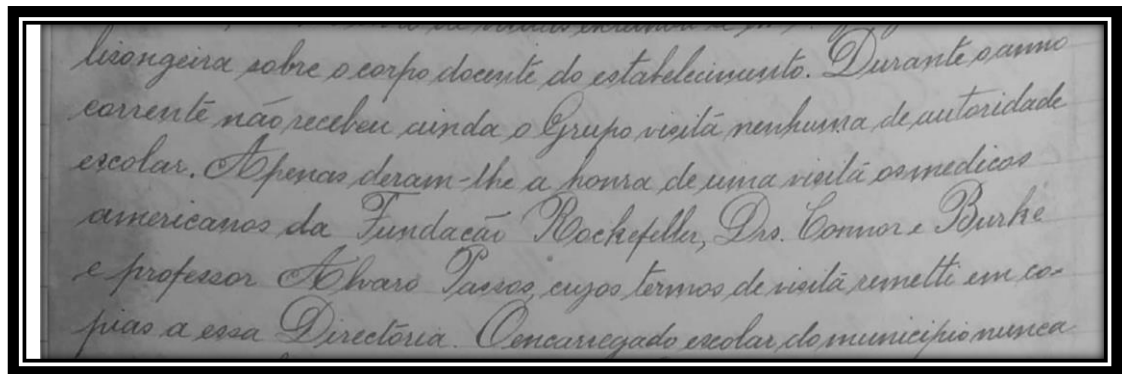 lisongeira sobre o corpo docente do estabelecimento. Durante o anno
corrente não recebeu ainda o Grupo visita nenhuma de autoridade
escolar. Apenas deram-lhe a honra de uma visita os medicos
americanos da Fundação Rockefeller, Drs. Connor e Burke
e professor Alvaro Passos, cujos termos de visita remetti em co-
pias a essa Directoria. O encarregado escolar do municipio nunca